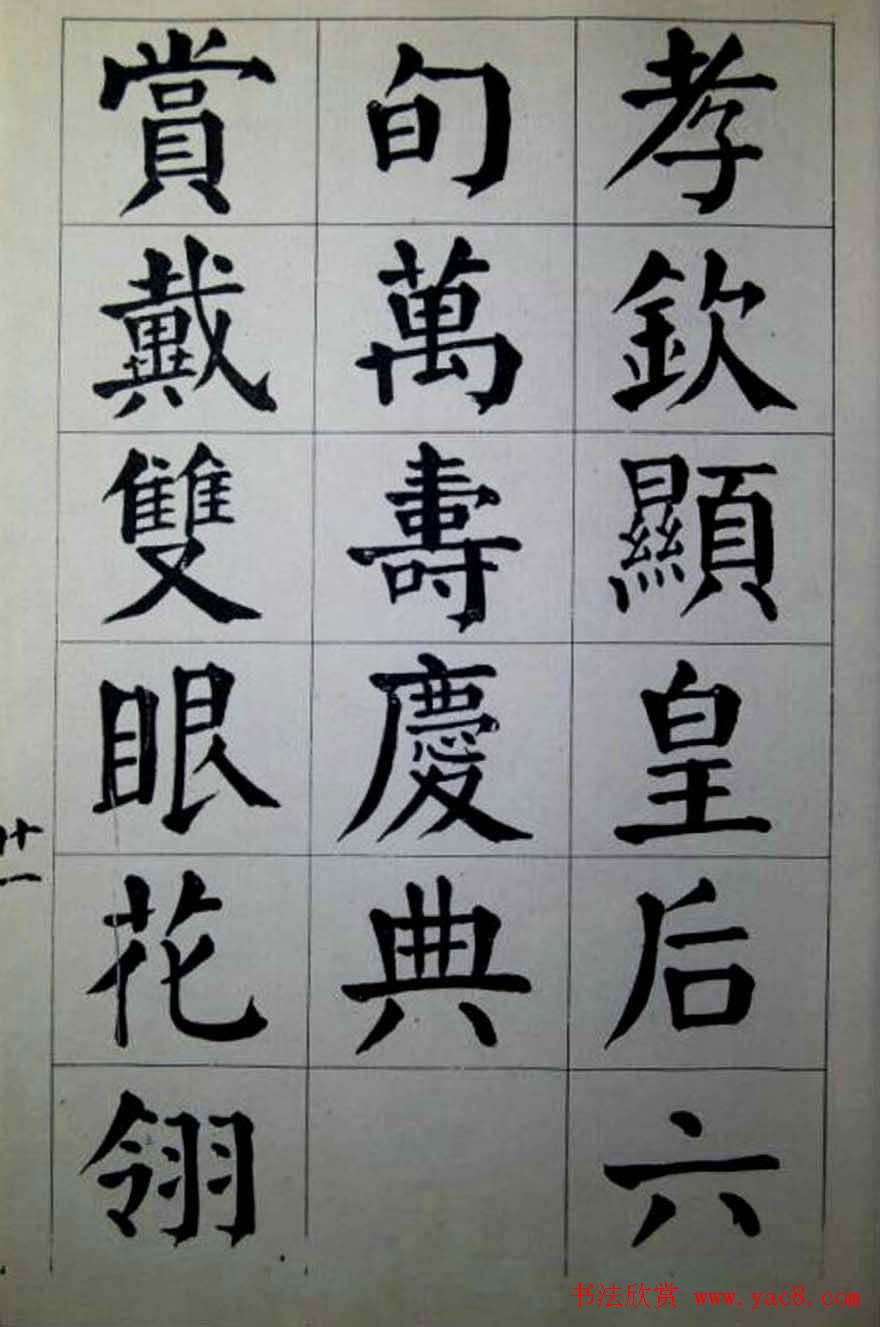 孝欽顯皇后六
旬萬壽慶典
賞戴雙眼花翎
廿一
书法欣赏 www.yac8.com